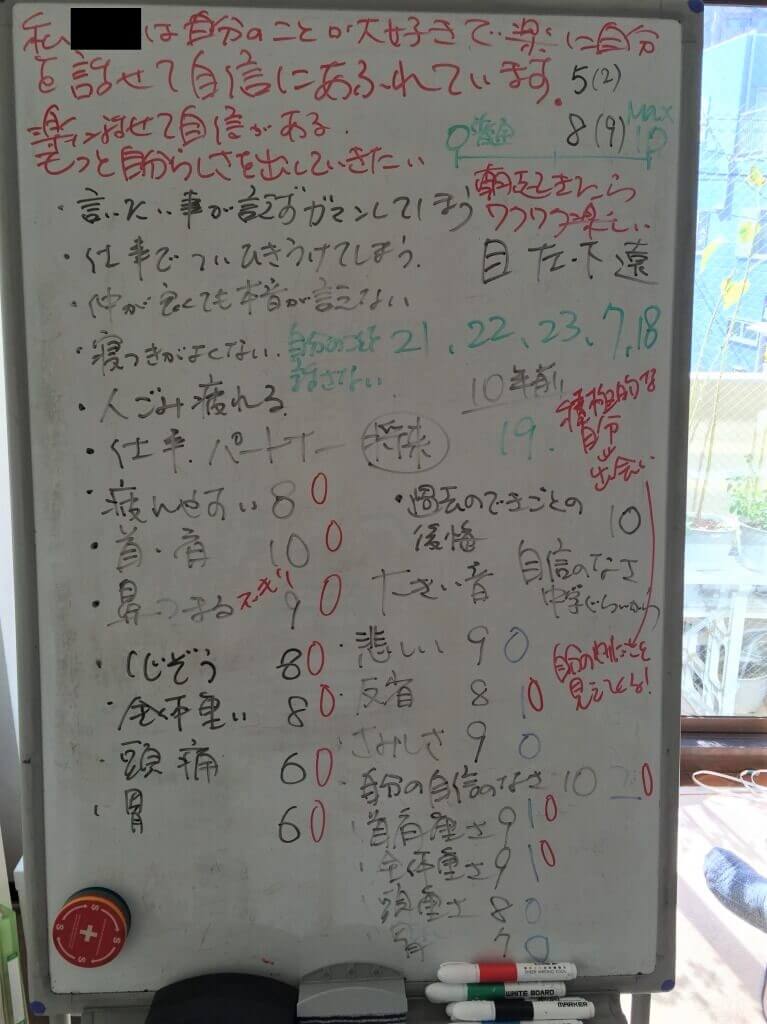 私 は自分のことが大好きで楽に自分
を話せて自信にあふれています。
5(2)
楽に話せて自信がある.
もっと自分らしさを出していきたい
8(9)
Max
0
10
朝起きたら
ワクワク楽しい
・言いたい事が言えずガマンしてしまう
・仕事でついひきうけてしまう.
目 左下 遠
・仲が良くても本音が言えない
・寝つきがよくない.
自分のことを
話さない
21、22、23、7、18
・人ごみ疲れる
10年前
19.
積極的な
自分
出会い
・仕事.パートナー 将来
・疲れやすい 8 0
・首・肩 10 0
・鼻つまる 9 0
・しんぞう 8 0
・全体重い 8 0
・頭痛 6 0
・胃 6 0
・過去のできごとの
後悔
10
大きい音
自信のなさ
中学ぐらいから
・悲しい 9 0
・反省 8 1 0
・さみしさ 9 0
・自分の自信のなさ 10 2 0
自分のやりたいことを
見えてくる!
首肩重さ 9 1 0
全体重さ 9 1 0
頭重さ 8 0
胃 7 0
WRITE BOARD
MARKER